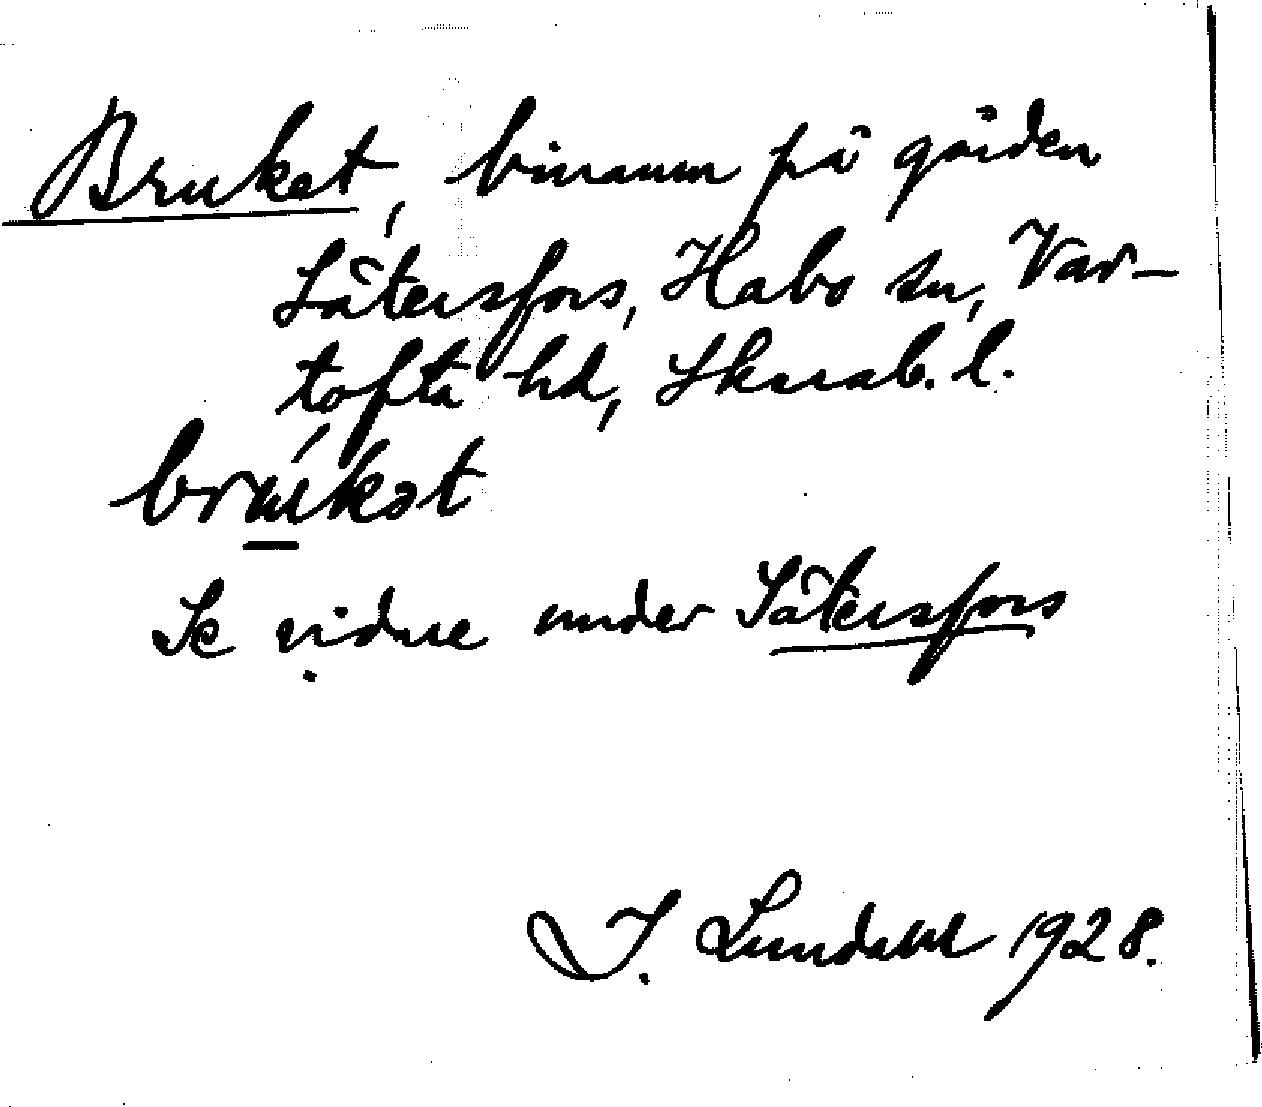 Bruket, binamn på gården
Sätersfors, Habo sn, Var-
tofta hd, Skarab. l.
brúkət
Se vidare under Sätersfors
I. Lundahl 1928.